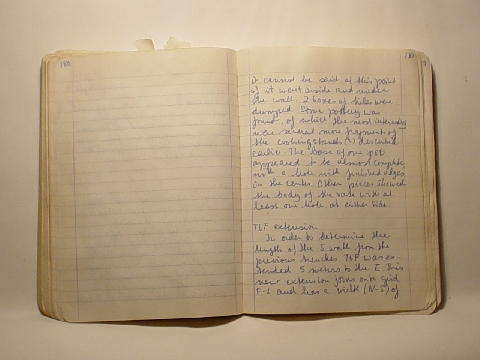 180
180
It cannot be said at this point
if it went inside and under
the wall. 2 boxes of tiles were
dumped. Some pottery was
found, of which the most interesting
were several more fragments of
the cooking stands (?) described
earlier. The base of one pot
appeared to be almost complete
with a hole with finished edges
in the center. Other pieces showed
the body of the vase with at
least one hole at either side.
T6F extension
In order to determine the
length of the S wall from the
previous trenches T6F was ex-
tended 5 meters to the E. This
new extension joins onto grid
F-1 and has a width (N-S) of